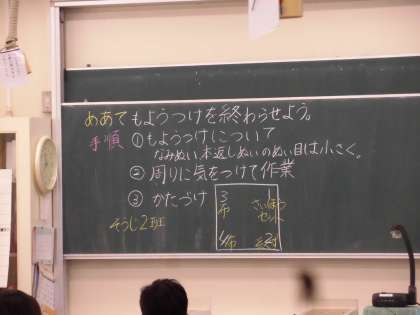 めあて もようつけを終わらせよう。
手順 ①もようつけについて
なみぬい、本返しぬいのぬい目は小さく。
② 周りに気をつけて作業
③ かたづけ
そうじ2班
3 布
1 さいほうセット
4 布
2